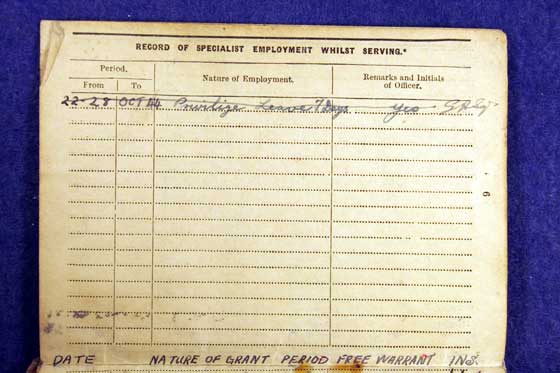 RECORD OF SPECIALIST EMPLOYMENT WHILST SERVING.*
Period. Nature of Employment. Remarks and Initials of Officer.
From To
22-28 OCT 44 Privilige Leave 7 Days yes
9
DATE NATURE OF GRANT PERIOD FREE WARRANT INS.